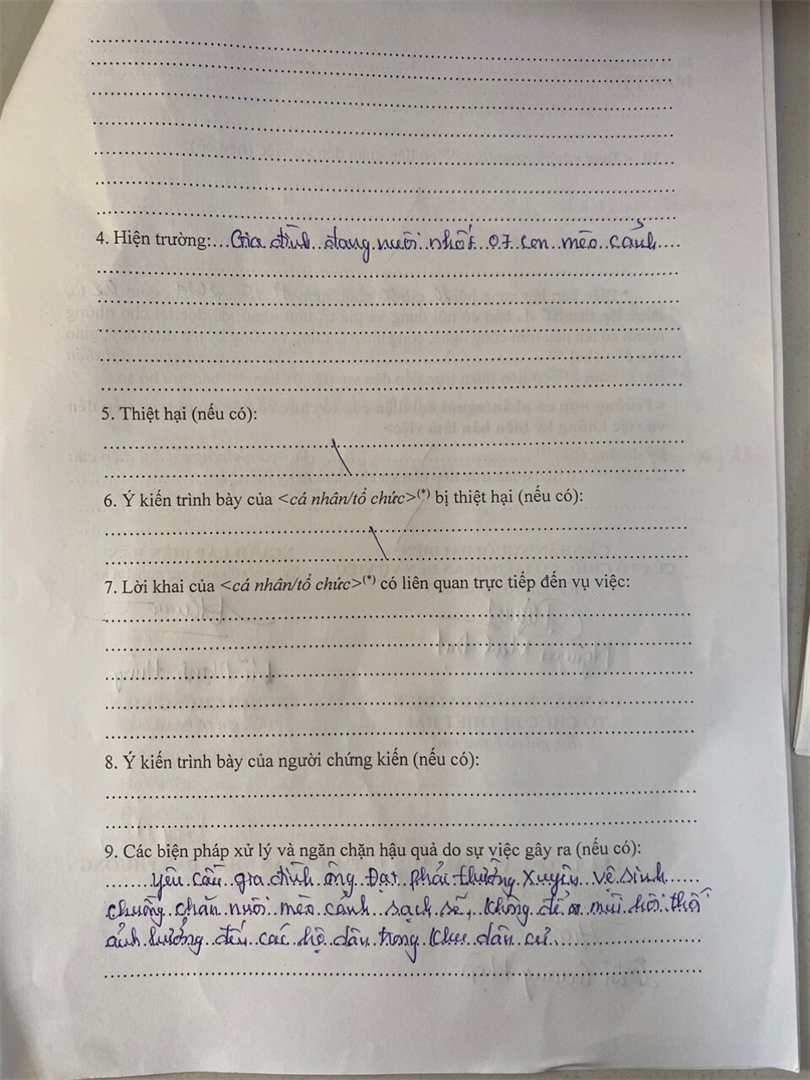 4. Hiện trường:... Gia đình đang nuôi nhốt 07 con mèo cảnh
5. Thiệt hại (nếu có):
6. Ý kiến trình bày của <cá nhân/tổ chức>(*) bị thiệt hại (nếu có):
7. Lời khai của <cá nhân/tổ chức>(*) có liên quan trực tiếp đến vụ việc:
8. Ý kiến trình bày của người chứng kiến (nếu có):
9. Các biện pháp xử lý và ngăn chặn hậu quả do sự việc gây ra (nếu có):
Yêu cầu gia đình ông Đạt phải thường xuyên vệ sinh
chuồng chăn nuôi mèo cảnh sạch sẽ, không để mùi hôi thối
ảnh hưởng đến các hộ dân trong khu dân cư